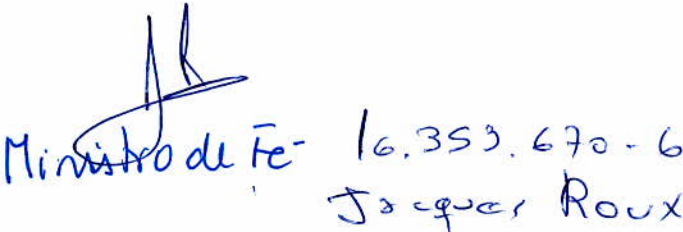 Ministro de Fe- 16.353.670-6
Jacques Roux